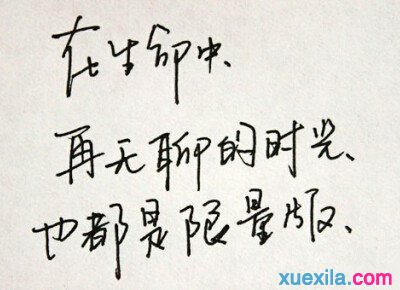 在生命中、
再无聊的时光、
也都是限量版、
xuexila.com